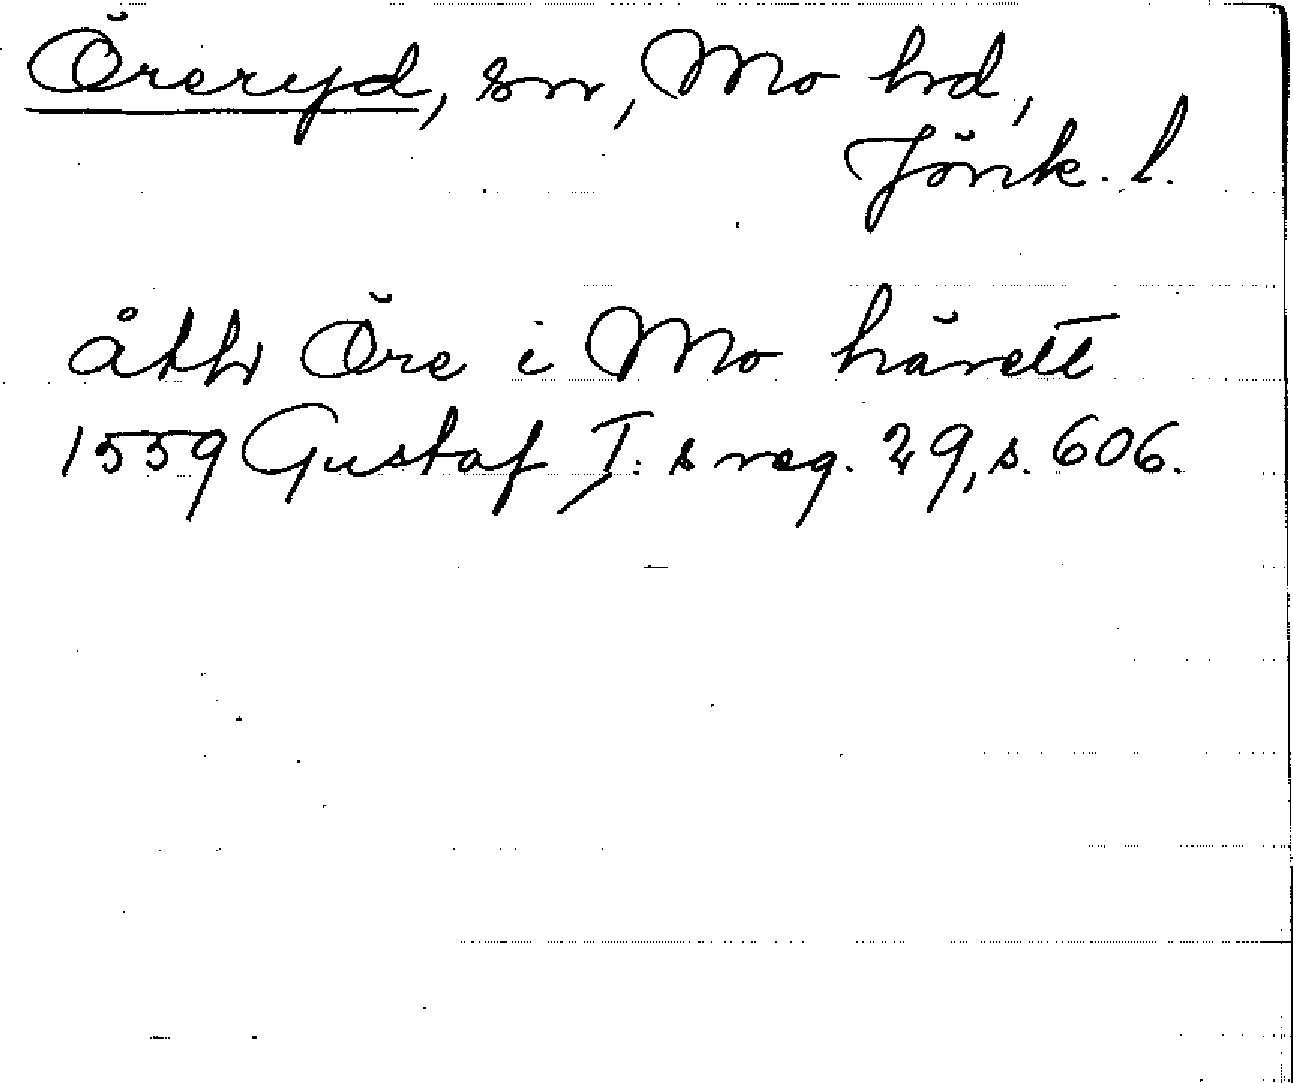 Öreryd, sn, Mo hd,
Jönk. l.
åthr Öre i Mo härett
1559 Gustaf I:s reg. 29, s. 606.